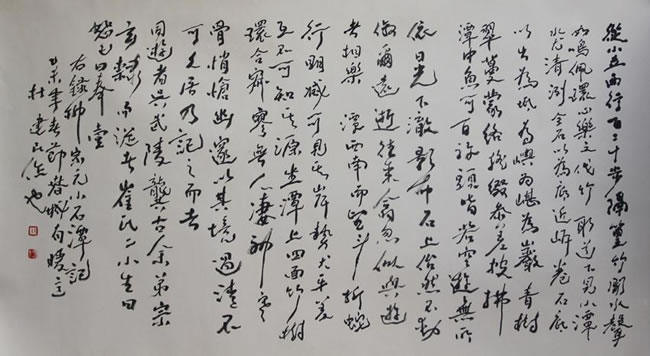 從小丘西行百二十步隔篁竹聞水聲
如鳴佩環心樂之伐竹取道下見小潭
水尤清冽全石以為底近岸卷石底
以出為坻為嶼為嵁為巖青樹
翠蔓蒙絡搖綴參差披拂
潭中魚可百許頭皆若空遊無所
依日光下澈影布石上佁然不動
俶爾遠逝往來翕忽似與遊
者相樂 潭西南而望斗折蛇
行明滅可見其岸勢犬牙差
互不可知其源坐潭上四面竹樹
環合寂寥無人淒神寒
骨悄愴幽邃以其境過清不
可久居乃記之而去
同遊者吳武陵龔古余弟宗
玄隸而從者崔氏二小生曰
恕己曰奉壹
右錄柳宗元小石潭記
乙未年春節
杜建